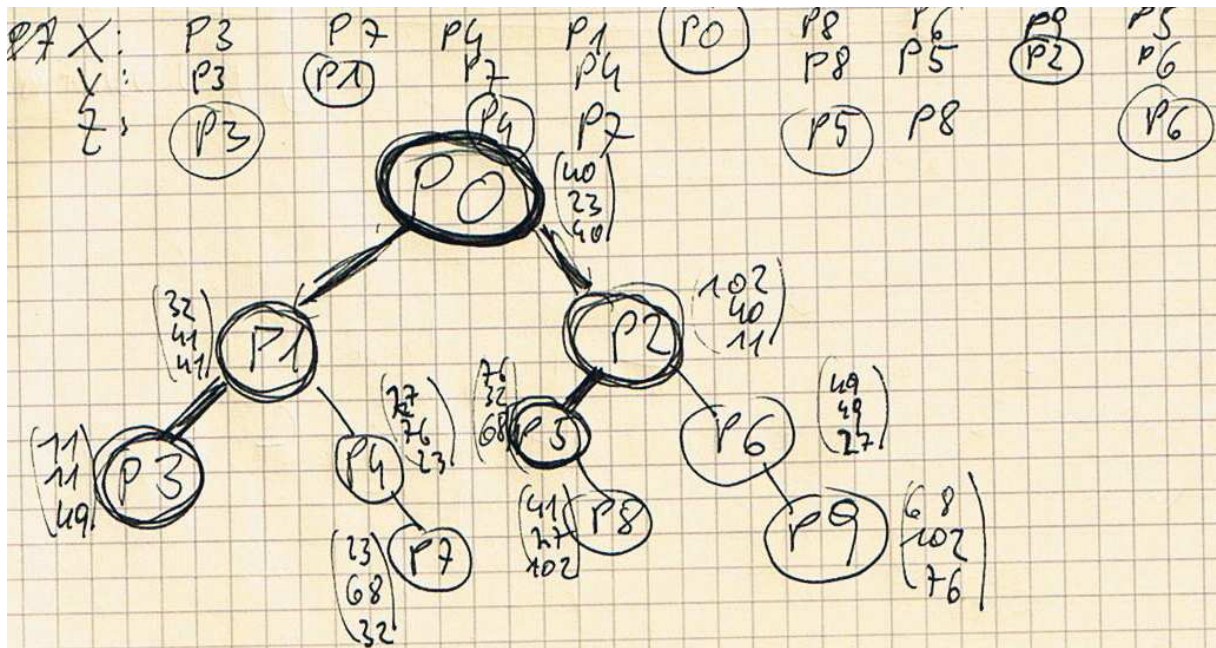 X: P3 P7 P4 P1 P0 P8 P6 P9 P5
Y: P3 P1 P7 P4 P8 P5 P2 P6
Z: P3 P4 P7 P5 P8 P6
P0
40
23
40
P1
32
41
41
P2
102
40
11
P3
11
11
49
P4
27
76
23
P5
76
32
68
P6
49
49
27
P7
23
68
32
P8
41
27
102
P9
68
102
76